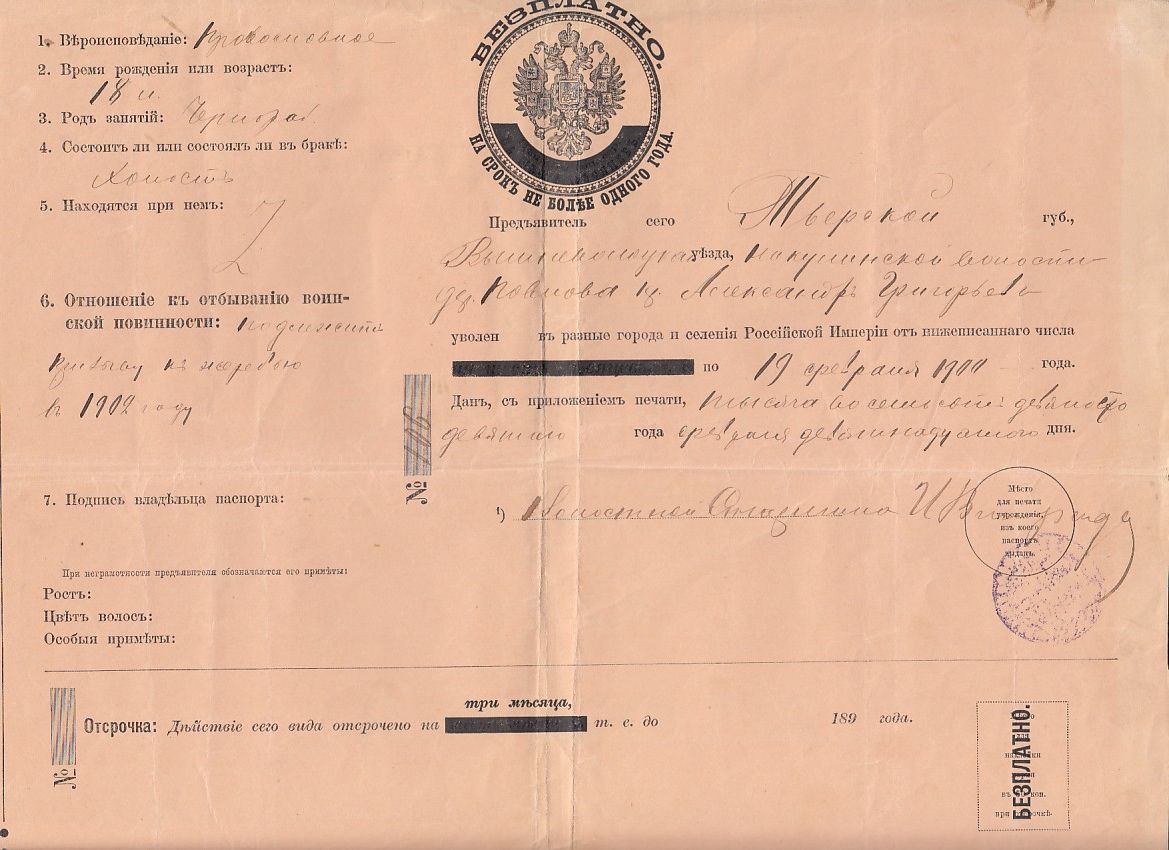 БЕЗПЛАТНО.
НА СРОКЪ НЕ БОЛѢЕ ОДНОГО ГОДА.
1. Вѣроисповѣданіе: Православное
2. Время рожденія или возрастъ:
18 л.
3. Родъ занятій: Чернораб.
4. Состоитъ ли или состоялъ ли въ бракѣ:
Холостъ
5. Находятся при немъ:
6. Отношеніе къ отбыванію воин-
ской повинности: подлежитъ
призыву къ жеребью
въ 1902 году
7. Подпись владѣльца паспорта:
При неграмотности предъявителя обозначаются его примѣты:
Ростъ:
Цвѣтъ волосъ:
Особыя примѣты:
№
Предъявитель сего Тверской губ.,
уѣзда, волости
Александръ Григорьевъ
уволен въ разные города и селенія Россійской Имперіи отъ нижеписаннаго числа
по 19 февраля 1900 года.
Данъ, съ приложеніемъ печати, тысяча восемьсотъ девяносто
девятаго года февраля девятнадцатаго дня.
Волостной Старшина
Мѣсто
для печати
учрежденія,
изъ коего
паспортъ
выданъ.
№
три мѣсяца,
Отсрочка: Дѣйствіе сего вида отсрочено на т. е. до 189 года.
БЕЗПЛАТНО.